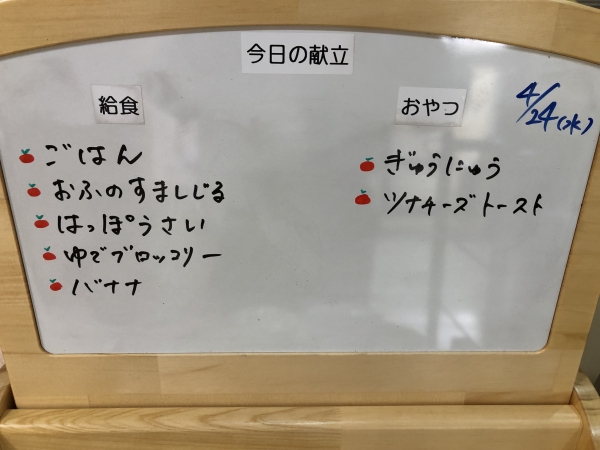 今日の献立
4/24(水)
給食
ごはん
おふのすましじる
はっぽうさい
ゆでブロッコリー
バナナ
おやつ
ぎゅうにゅう
ツナチーズトースト